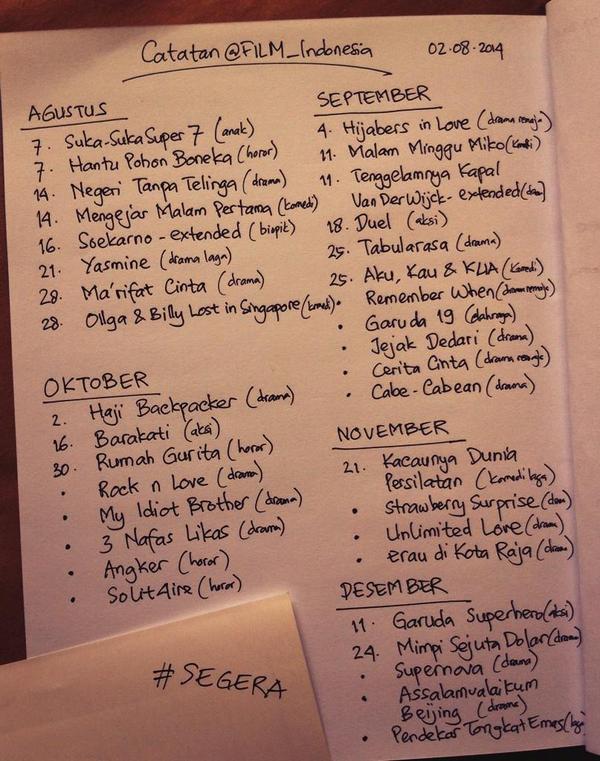 Catatan @FILM_Indonesia
02.08.2014
AGUSTUS
7. Suka-Suka Super 7 (anak)
7. Hantu Pohon Boneka (horor)
14. Negeri Tanpa Telinga (drama)
14. Mengejar Malam Pertama (komedi)
16. Soekarno - extended (biopik)
21. Yasmine (drama laga)
28. Ma'rifat Cinta (drama)
28. Ollga & Billy Lost in Singapore (komedi)
OKTOBER
2. Haji Backpacker (drama)
16. Barakati (aksi)
30. Rumah Gurita (horor)
• Rock n Love (drama)
• My Idiot Brother (drama)
• 3 Nafas Likas (drama)
• Angker (horor)
• Solit4ire (horor)
#SEGERA
SEPTEMBER
4. Hijabers in Love (drama remaja)
11. Malam Minggu Miko (komedi)
11. Tenggelamnya Kapal
Van Der Wijck - extended (drama)
18. Duel (aksi)
25. Tabularasa (drama)
25. Aku, Kau & KUA (komedi)
• Remember When (drama remaja)
• Garuda 19 (olahraga)
• Jejak Dedari (drama)
• Cerita Cinta (drama remaja)
• Cabe-Cabean (drama)
NOVEMBER
21. Kacaunya Dunia
Persilatan (komedi laga)
• Strawberry Surprise (drama)
• Unlimited Love (drama)
• Erau di Kota Raja (drama)
DESEMBER
11. Garuda Superhero (aksi)
24. Mimpi Sejuta Dolar (drama)
• Supernova (drama)
• Assalamualaikum
Beijing (drama)
• Pendekar Tongkat Emas (laga)